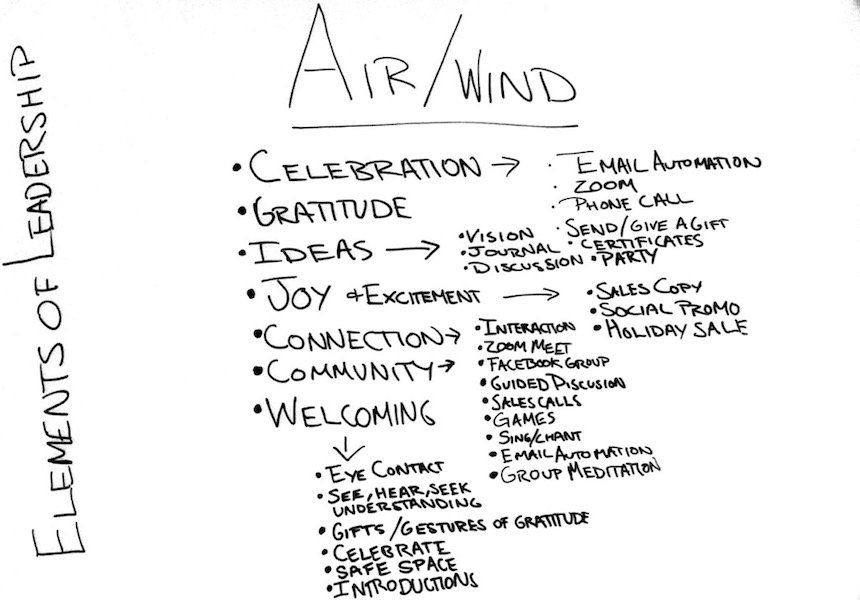 ELEMENTS OF LEADERSHIP
AIR/WIND
• CELEBRATION →
• EMAIL AUTOMATION
• ZOOM
• PHONE CALL
• SEND/GIVE A GIFT
• CERTIFICATES
• PARTY
• GRATITUDE
• IDEAS →
• VISION
• JOURNAL
• DISCUSSION
• JOY & EXCITEMENT →
• SALES COPY
• SOCIAL PROMO
• HOLIDAY SALE
• CONNECTION →
• COMMUNITY →
• INTERACTION
• ZOOM MEET
• FACEBOOK GROUP
• GUIDED DISCUSION
• SALES CALLS
• GAMES
• SING/CHANT
• EMAIL AUTOMATION
• GROUP MEDITATION
• WELCOMING
↓
• EYE CONTACT
• SEE, HEAR, SEEK
UNDERSTANDING
• GIFTS/GESTURES OF GRATITUDE
• CELEBRATE
• SAFE SPACE
• INTRODUCTIONS